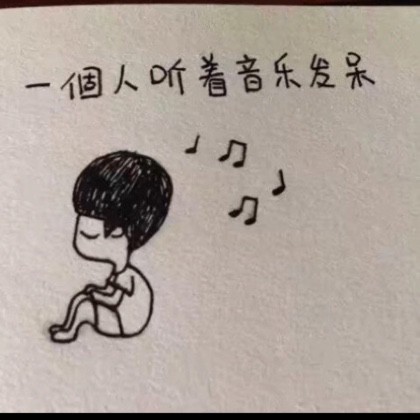 一個人听着音乐发呆